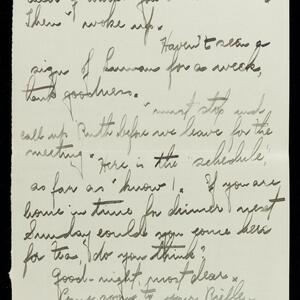 Then I woke up.
Haven't seen a
sign of Luman for a week,
thank goodness.
must stop and
call up Ruth before we leave for the
meeting.
Here is the "schedule",
as far as I know!. If you are
home in time for dinner next
Sunday could you come here
for tea, do you think?
Good-night, most dear.